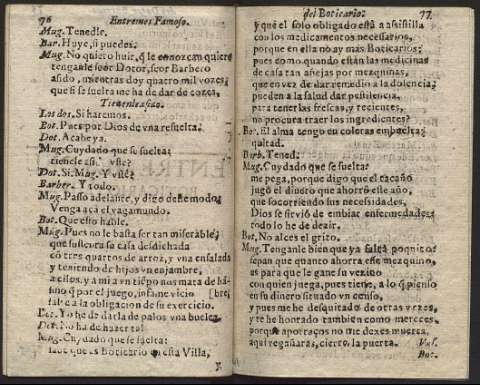 76
Entremes Famoso.
Mug. Tenedle.
Bar. Huye, si puedes.
Mug. No quiero huir, q̃ le conozcan quiero
tenganle seor Dotor, seor Barbero
asido, mientras doy quatro mil vozes,
que si se suelta me ha de dar de cozes,
Tienenle asido.
Los dos. Si haremos.
Bot. Pues por Dios de vna resuelta.
Dot. Acabe ya.
Mug. Cuydado que se suelta;
tienele asi. vsté?
Dot. Si, Mug. Y vsté?
Barber. Y todo.
Mug. Passo adelante, y digo deste modo,
Venga acá el vagamundo.
Bot. Que esto hable.
Mug. Pues no le basta ser tan miserable,
que sustenta su casa desdichada
cõ tres quartos de arroz, y vna ensalada
y teniendo de hijos vn enjambre,
a ellos, y a mi a vn tiẽpo nos mata de hã-
sino q̃ por el juego, infame vicio [bre,
falte a la obligacion de su exercicio.
Bot. Yo he de darla de palos vna buelta.
Dot. No ha de hazer tal
Mug. Cuydado que se suelta:
sabe que es Boticario en esta Villa,
y
del Boticario. 77.
y que èl solo obligado està a assistilla
con los medicamentos necessarios,
porque en ella no ay mas Boticarios:
pues como quando estàn las medicinas
de casa tan añejas por mezquinas,
que en vez de dar remedio a la dolencia;
pueden a la salud dar pestilencia,
para tenerlas frescas, y recientes,
no procura traer los ingredientes?
Bot. El alma tengo en coleras embuelta;
quitad.
Barb. Tened.
Mug. Cuydado que se suelta:
me pega, porque digo que el tacaño
jugó el dinero que ahorrò este año,
que socorriendo sus necessidades,
Dios se sirviò de embiar enfermedades;
todo lo he de dezir.
Bot. No alces el grito.
Mug. Tenganle bien que ya falta poquito;
sepan que quanto ahorra este mezquino,
es para que le gane su vezino
con quien juega, pues tiene, a lo q̃ pienso
en su dinero situado vn censo,
y pues me he desquitado de otras vezes,
y te he honrado tambien como mereces,
porque aporraços no me dexes muerta,
aqui regañaràs, cierro la puerta. Vas.
Bot.